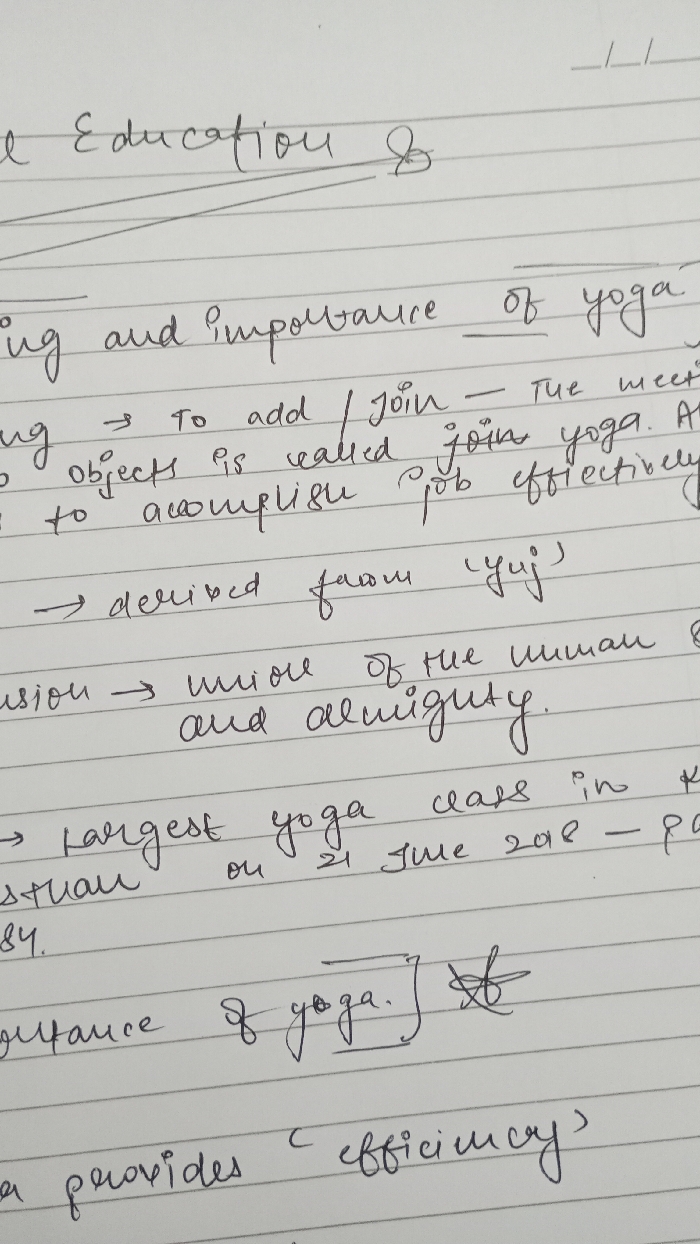 Education
and importance of yoga
→ To add / join — The meet
objects is called join yoga. A
to accomplish job effectively
→ derived from 'yuj'
usion → union of the human s
and almighty.
→ Largest yoga class in K
sthan on 21 June 2018 — Pa
84.
ortance of yoga.]
provides 'efficiency'